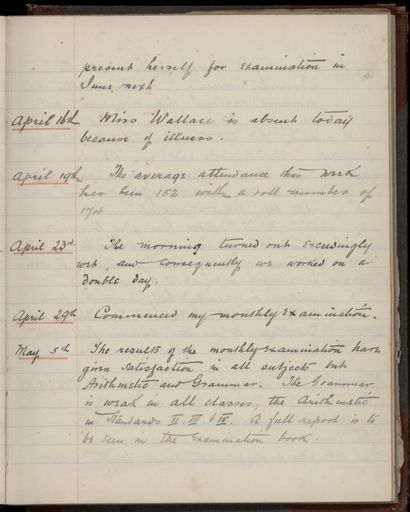 present herself for examination in
June next
April 16th Miss Wallace is absent today
because of illness.
April 19th The average attendance this week
has been 152 with a roll number of
174
April 23rd. The morning turned out exceedingly
wet, and consequently we worked on a
double day.
April 29th Commenced my monthly examination.
May 5th The results of the monthly examination have
given satisfaction in all subjects but
Arithmetic and Grammar. The Grammar
is weak in all classes, the Arithmetic
in Standards II. III. & IV. A full report is to
be seen in the Examination book.